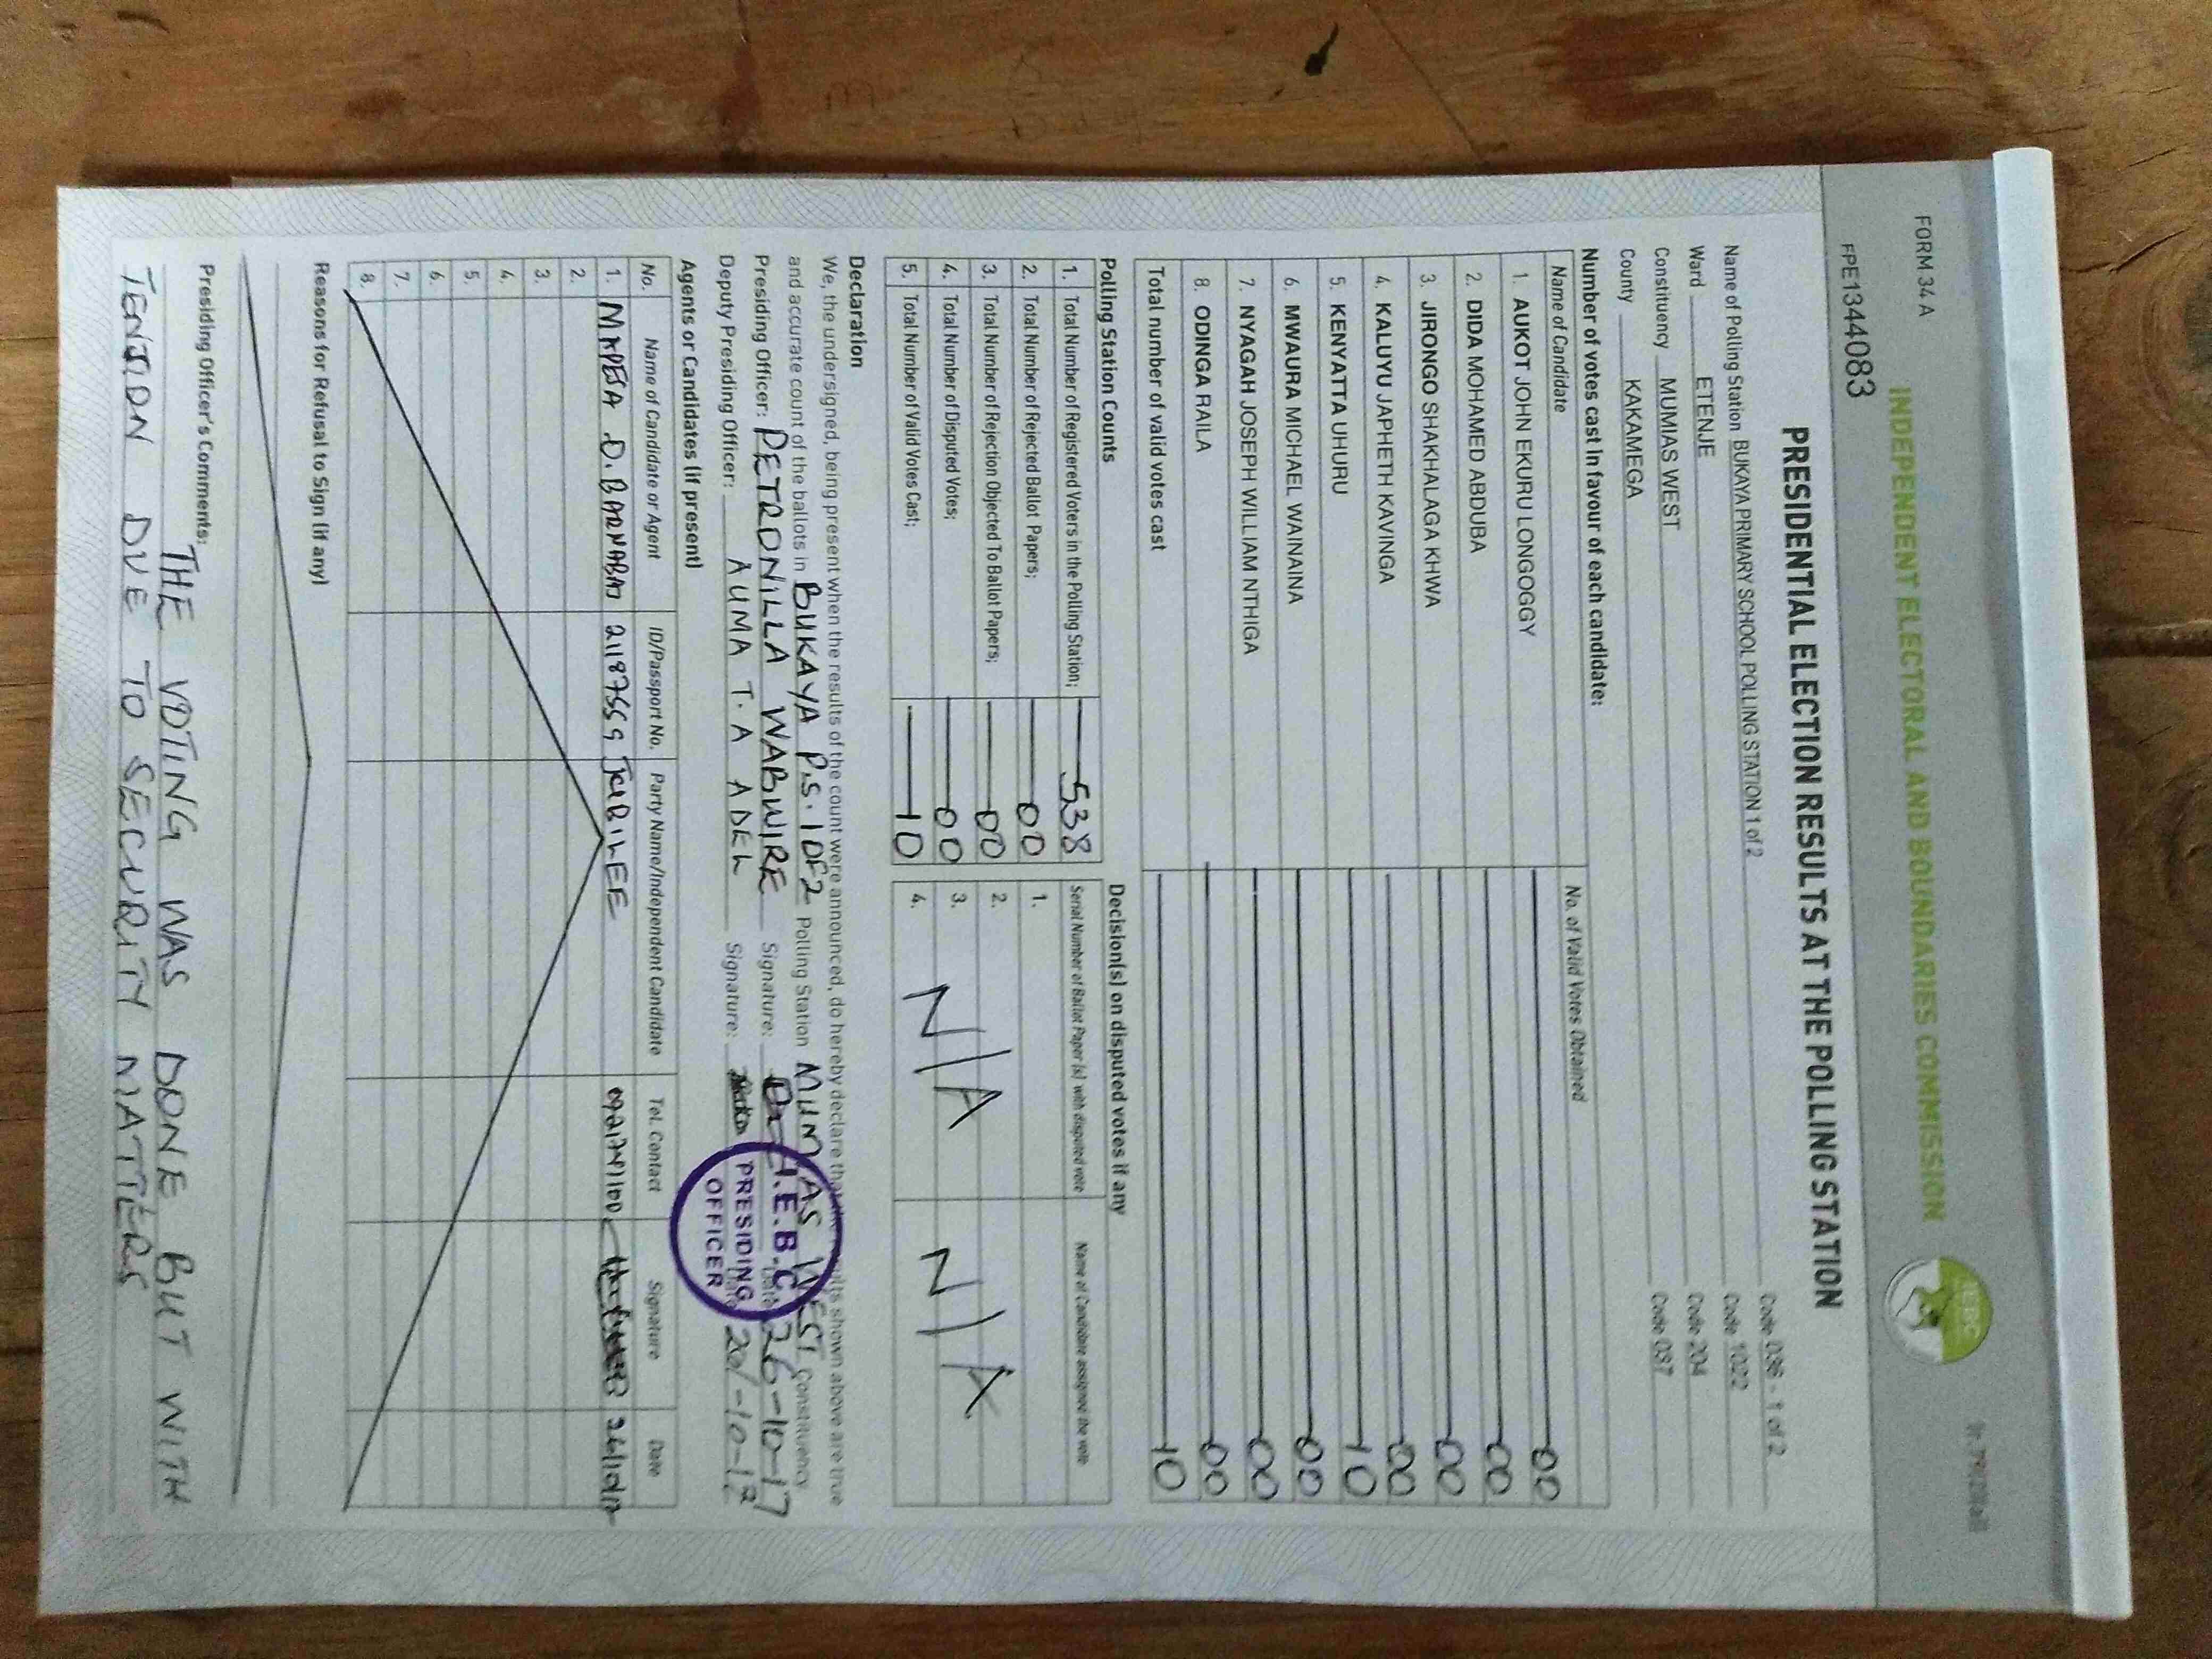 FORM 34 A
FPE1344083
INDEPENDENT ELECTORAL AND BOUNDARIES COMMISSION
IEBC
PRESIDENTIAL ELECTION RESULTS AT THE POLLING STATION
Name of Polling Station BUKAYA PRIMARY SCHOOL POLLING STATION 1 of 2 Code 036 - 1 of 2
Ward ETENJE Code 1022
Constituency MUMIAS WEST Code 204
County KAKAMEGA Code 037
Number of votes cast in favour of each candidate:
Name of Candidate No. of Valid Votes Obtained
1. AUKOT JOHN EKURU LONGOGGY 00
2. DIDA MOHAMED ABDUBA 00
3. JIRONGO SHAKHALAGA KHWA 00
4. KALUYU JAPHETH KAVINGA 00
5. KENYATTA UHURU 10
6. MWAURA MICHAEL WAINAINA 00
7. NYAGAH JOSEPH WILLIAM NTHIGA 00
8. ODINGA RAILA 00
Total number of valid votes cast 10
Polling Station Counts
1. Total Number of Registered Voters in the Polling Station; 538
2. Total Number of Rejected Ballot Papers; 00
3. Total Number of Rejection Objected To Ballot Papers; 00
4. Total Number of Disputed Votes; 00
5. Total Number of Valid Votes Cast; 10
Decision(s) on disputed votes if any
Serial Number of Ballot Paper (s) with disputed vote Name of Candidate assigned the vote
1.
2.
3. N/A N/A
4.
Declaration
We, the undersigned, being present when the results of the count were announced, do hereby declare that the results shown above are true
and accurate count of the ballots in BUKAYA P.S. 1 OF 2 Polling Station MUMIAS WEST Constituency
Presiding Officer: PETRONILLA WABWIRE Signature: Date 26-10-17
Deputy Presiding Officer: AUMA T. A ADEL Signature: Date
I.E.B.C
PRESIDING
OFFICER
Agents or Candidates (if present)
No. Name of Candidate or Agent ID/Passport No. Party Name/Independent Candidate Tel. Contact Signature Date
1. D. BARNABAS JUBILEE
2.
3.
4.
5.
6.
7.
8.
Reasons for Refusal to Sign (if any)
Presiding Officer's Comments:
THE VOTING WAS DONE BUT WITH
TENSION DUE TO SECURITY MATTERS